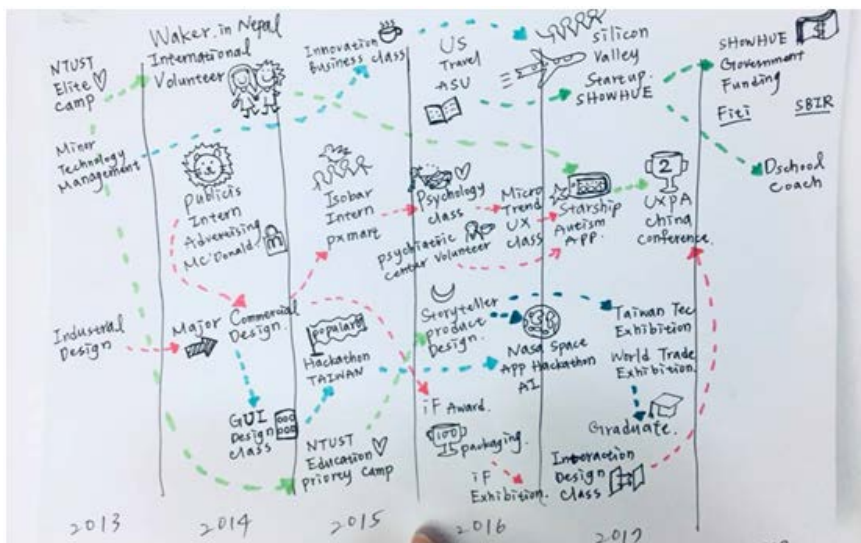 NTUST
Elite
Camp
Minor
Technology
Management
Industrial
Design
Waker in Nepal
International
Volunteer
Publicis
Intern
Advertising
MC'Donald
Major Commercial
Design.
GUI
Design
class
Innovation
Business class
Isobar
Intern
pxmart
popular
Hackathon
TAIWAN
NTUST
Education
Priority Camp
US
Travel
ASU
Psychology
class
psychiatric
Center Volunteer
Storyteller
product
Design.
iF Award.
100
packaging.
iF
Exhibition.
Micro
Trend
UX
class
Nasa Space
App Hackathon
AI
Silicon
Valley
Startup.
SHOWHUE
Starship
Autism
APP.
2
UXPA
China
Conference.
Taiwan Tec
Exhibition
World Trade
Exhibition.
Graduate.
Interaction
Design
Class
SHOWHUE
Government
Funding
Fiti SBIR
Dschool
coach
2013 2014 2015 2016 2017